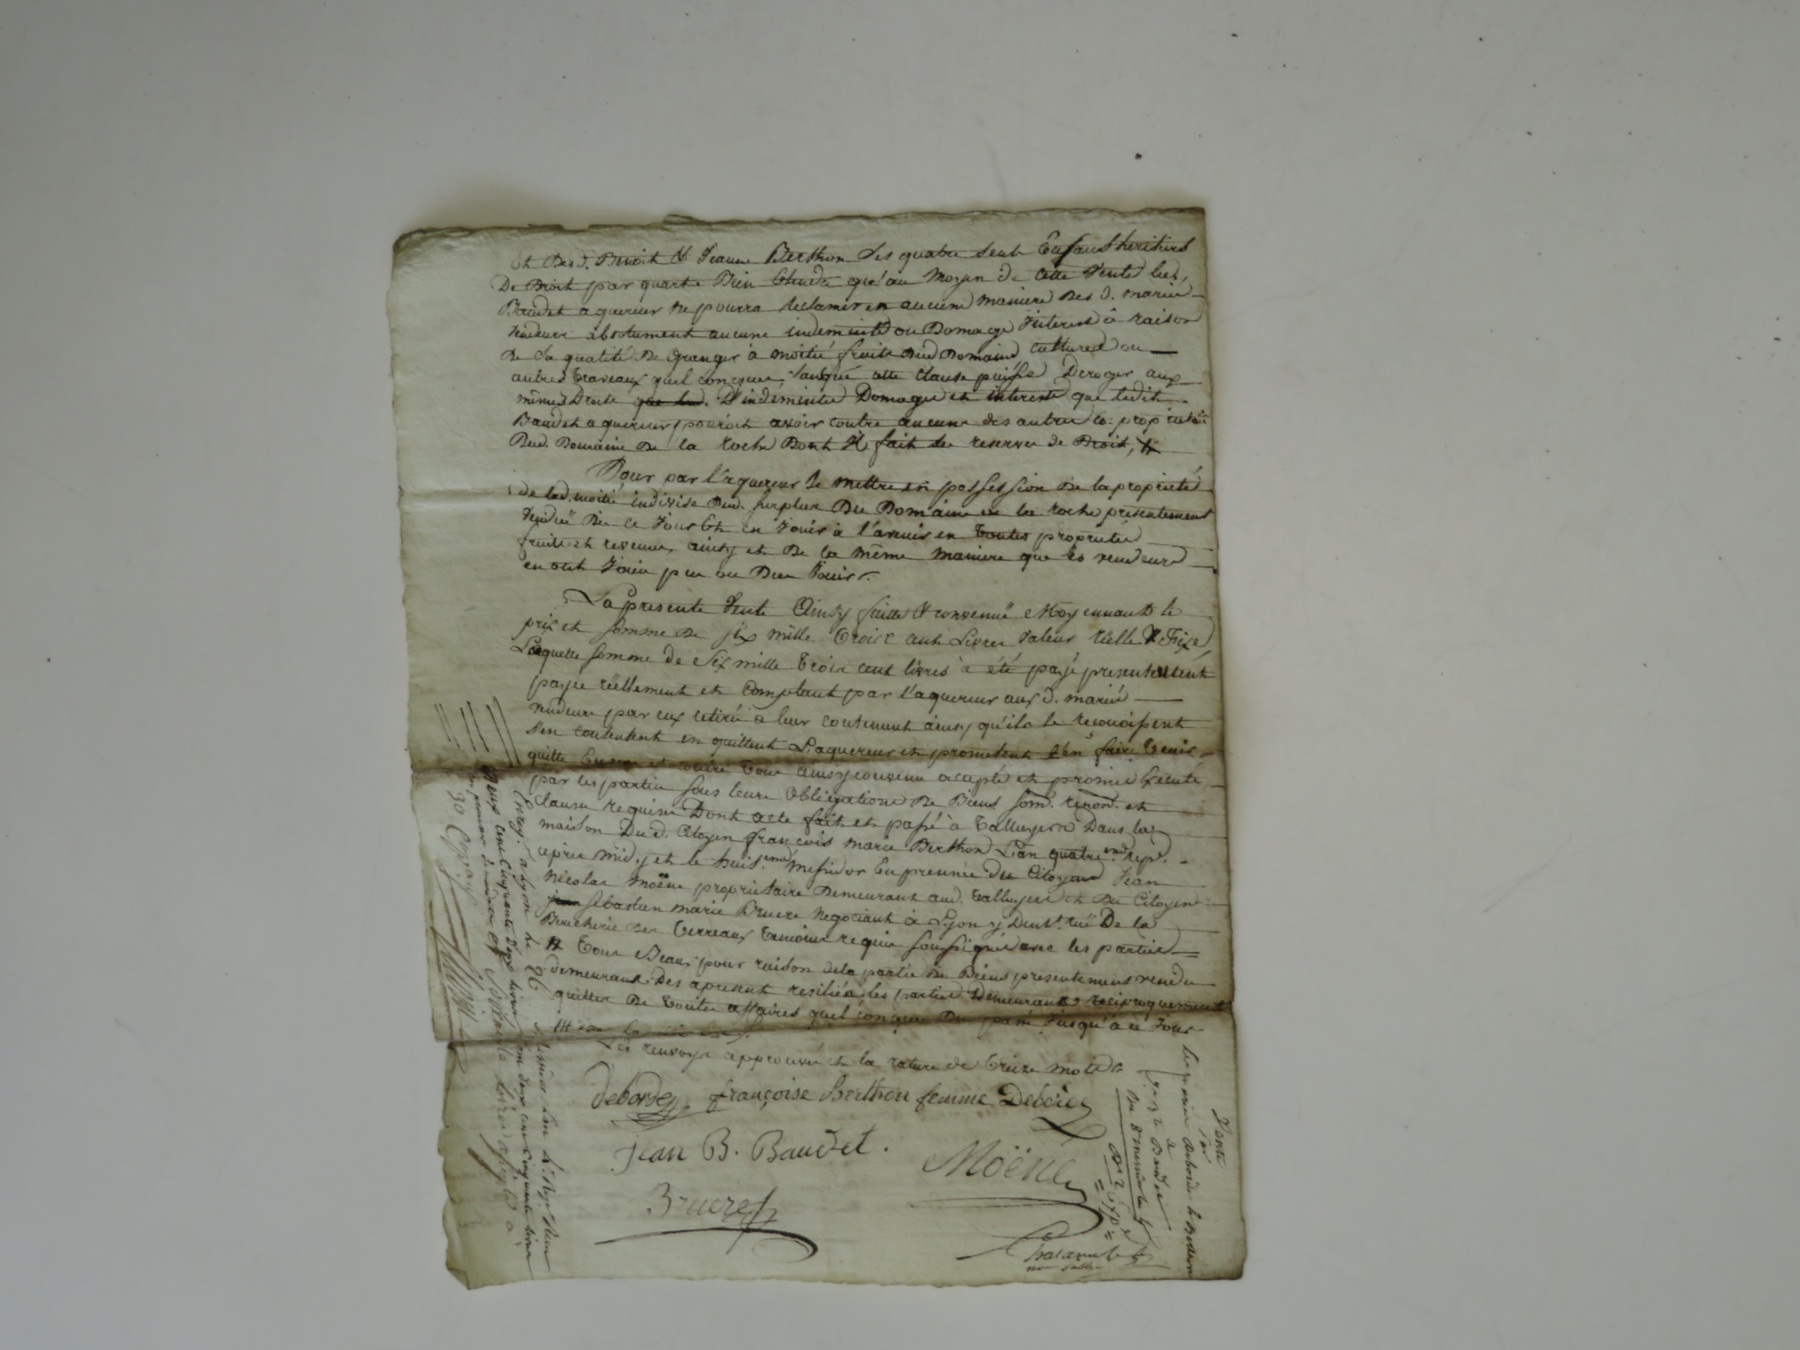 Et Bend. Benoit & Jeanne Berthon Les quatre seuls Enfans & heritiers
De Droit par quart. Bien Entendu qu'au Moyen de cette Vente led.
Baudet aquereur ne pourra reclamer en aucune maniere Des d. mariés
Vendeurs absolument aucune indemnité ou Domage Interest à raison
De sa qualité De Granger à moitié fruits Dud. Domaine cultures ou
autres travaux quelconques, sans que cette clause puisse Deroger aux
mêmes Droits D'indemnités Domages et interests que ledit
Baudet aquereur pouroit avoir contre aucuns des autres co-proprietaires
Dud. Domaine De la roche Dont il fait de reserves de Droit, #
Pour par l'aquereur se mettre en possession De la proprieté
de lad. moitié indivise Dud. surplus Du Domaine de la roche presentement
Vendu Dès ce Jour Et en Jouir à l'avenir en toutes proprietés
fruits et revenus, ainsy et De la même Maniere que les vendeurs
en ont Joui peu ou Deu Jouir.
La presente Vente Ainsy faite & convenuë Moyennant le
prix et somme de six mille trois cent Livres valeur réelle & Fixe,
Laquelle somme de Six mille trois cent livres a été payé presentement
payée réellement et comptant par l'aquereur aux d. mariés
vendeurs par eux retirée à leur contentement ainsy qu'ils le reconoissent
s'en contentent en quittent L'aquereur et prometent l'en faire tenir
quitte Envers et contre tous ainsy convenu accepté et promis Executé
par les parties sous leurs obligations De Biens som. renon. et
clauses requises Dont acte fait et passé à Talluyers Dans la
maison Dud. Citoyen françois marie Berthon L'an quatre.me rep.
après midy et le huit.eme Messidor En presence des Citoyens Jean
Nicolas Moëne proprietaire Demeurant aud. Talluyers et Du Citoyen
sebastien marie Bruere Negociant à Lyon y Dem.t ruë De la
Boucherie des Terreaux temoins requis soussignés avec les parties
# tous Beaux pour raison de la partie de Biens presentement vendu
demeurant Des apresent resiliés, les parties Demeurant reciproquement
quittes De toutes affaires quelconques Du passé Jusqu'à ce Jour
Les renvoys approuvés et la rature de treize mots
debordes françoise Berthon femme Debordes
Jean B. Baudet.
Moëne
Bruere
Enregé. à Lyon le 26 Messidor
Deux cent cinquante deux livres
30
Vente
par
les mariés Deborde & Berthon
à
Baudet
Du 8 messidor